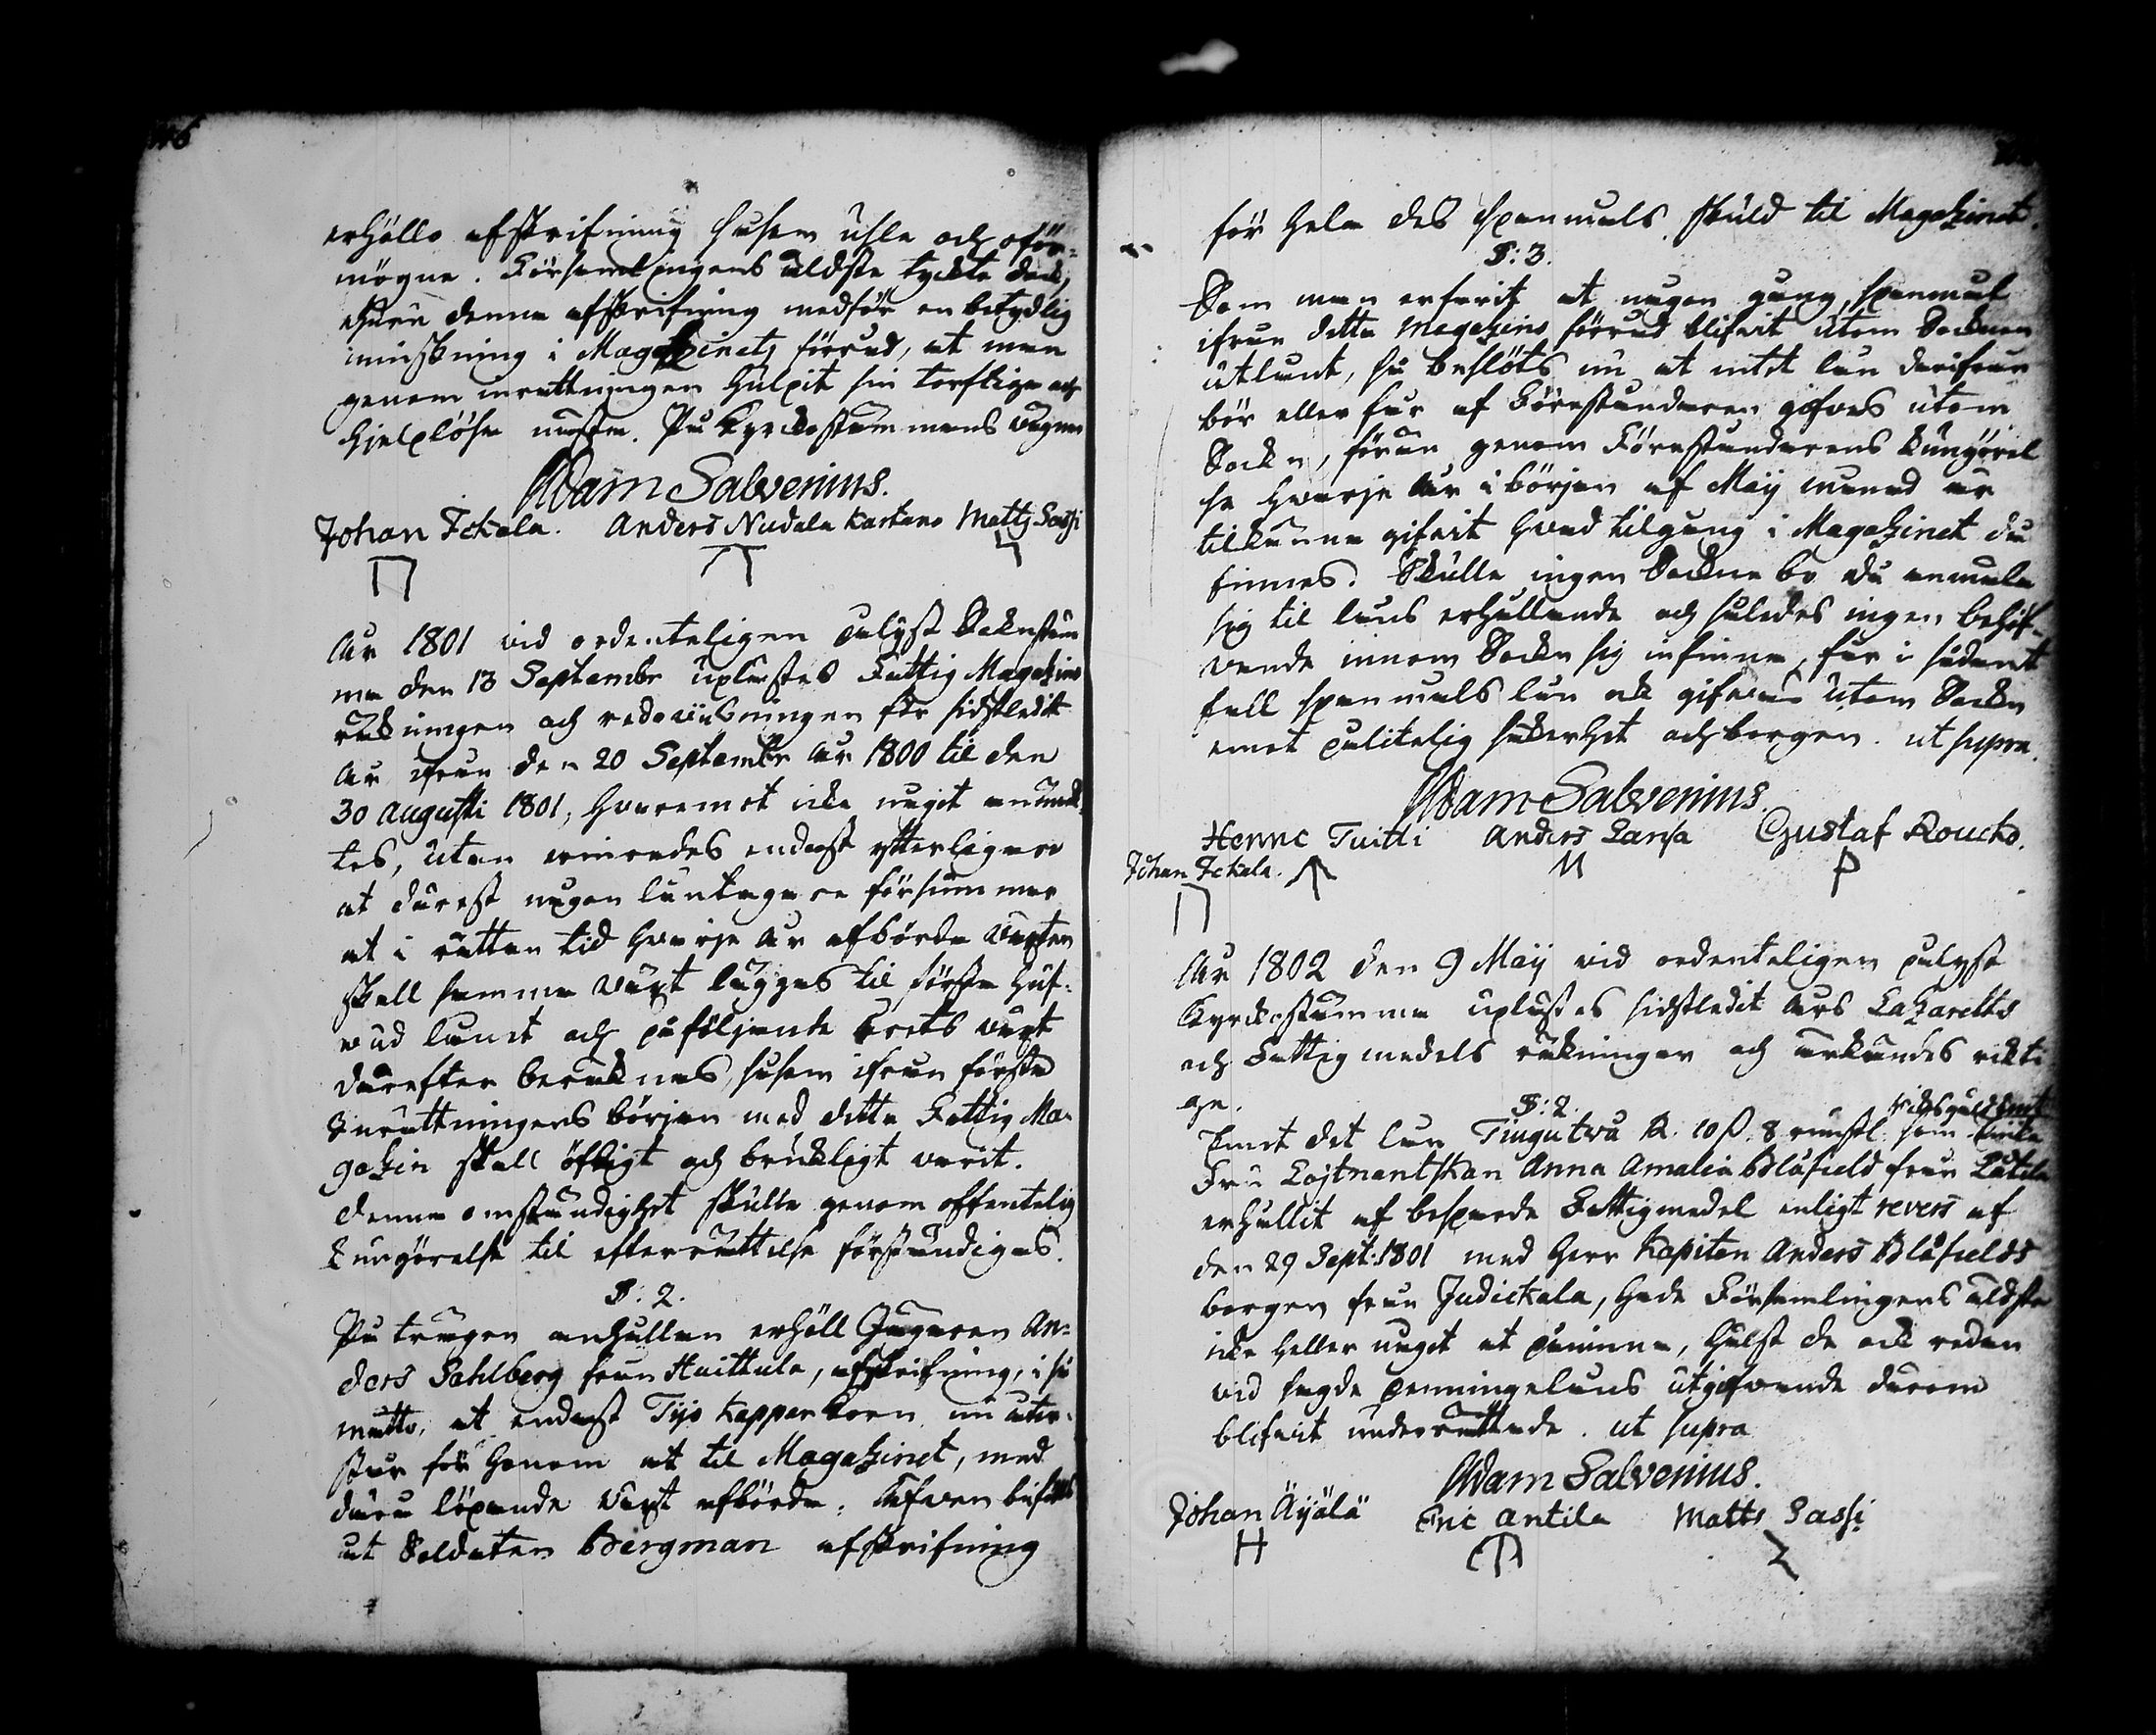 erhölle afskrifning såsom usle och oför-
mögne. Församlingens äldste tyckte ock,
ehuru denna afskrifning medför en betydlig
minskning i Magazinets förråd, at man
genom inrättningen hulpit sin torftige och
hjelplöse nästa. På Kyrckostämmans vägnar
Adam Salvenius.
Johan Ickala. Anders Nudala Kartano Matts Sassi
År 1801 vid ordenteligen pålyst Soknstäm
ma den 13 Septembr uplästes Fattig Magazins
räkningen och redoviisningen för sidstledit
År ifrån den 20 Septembr År 1800 til den
30 Augusti 1801, hvaremot icke något anmärk-
tes, utan ytterligare
at därest någon låntagare försummar
at i rättan tid hvarje år afbörda växten
skall samma växt läggas til första huf-
vud lånet och påföljande årets växt
därefter beräknas, såsom ifrån första
Inrättningens början med detta Fattig Ma-
gazin skall öfligt och brukligt varit.
Denna omständighet skulle genom offentelig
kungörelse til efterrättelse förständigas.
§: 2.
På trägen anhållan erhöll Gugaren An-
ders Sahlberg från Huittula, afskrifning, i så
måtto, at endast Tijo kappar korn nu åter-
står för honom at til Magazinet, med
dära löpande växt afbörda. Äfven bifölls
at Soldaten Bergman afskrifning
för hela des spanmåls skuld til Magazinet.
§: 3.
Som man erfarit at någon gång, spanmål
ifrån detta Magazins förråd blifvit utom Socknen
utlånt, så beslöts nu at intet lån därifrån
bör eller får af Föreståndaren gifvas utom
Sockn, förän genom Föreståndarens kungörel
se hvarje år i början af Maij månad är
tilkänna gifvit hvad tilgång i Magazinet då
finnes. Skulle ingen Sockne bo då anmäla
sig til låns erhållande och således ingen behöf-
vande innom Sockn sig infinna, får i sådant
fall spanmåls lån ock gifvas utom Sockn
emot pålitelig säkerhet och borgen. ut supra.
Adam Salvenius.
Henric Tuitti Anders Lansa Gustaf Roucko.
Johan Ickala.
År 1802 den 9 Maij vid ordenteligen pålyst
Kyrckostämma uplästes sidstledit års Lazaretts
och Fattigmedels räkningar och ärkändes rikti
ga.
§: 2. riksgälds mt
Emot det lån Tiugutvå R. 10 ß. 8 runst. som Enka
Fru Lojtnantskan Anna Amalia Blåfield från Lutila
erhållit af besparde Fattigmedel enligt revers af
den 29 Sept. 1801 med Herr Kapiten Anders Blåfields
borgen från Judickala, hade Församlingens äldste
icke heller något at påminna, hälst de ock redan
vid sagde penningelåns utgifvande därom
blifvit underrättade. ut supra
Adam Salvenius.
Johan Äyälä Eric Antila Matts Sassi